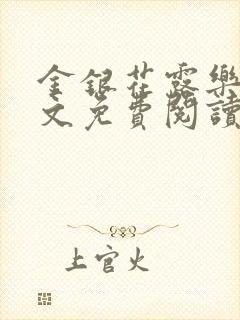 金銀花露樂
文免費閱讀
上官火